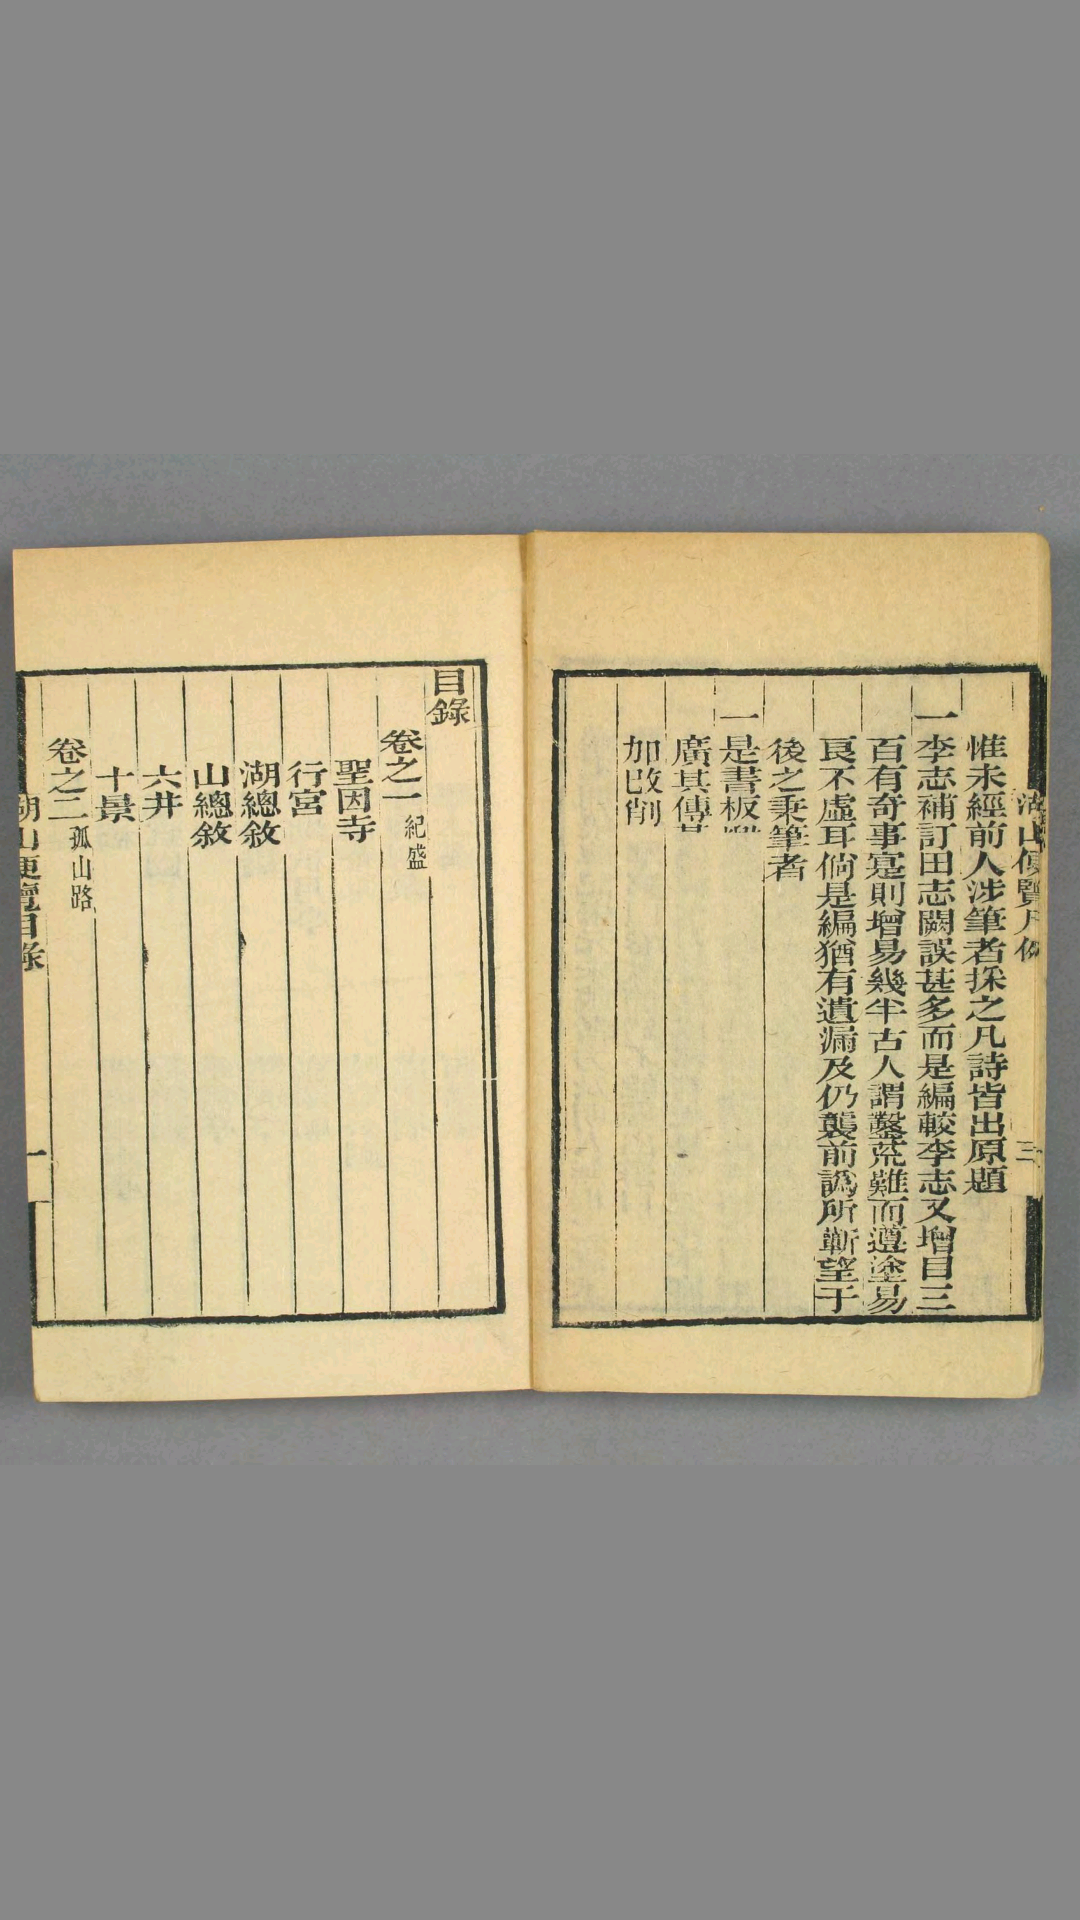 惟未經前人涉筆者採之凡詩皆出原題
一李志補訂田志闕誤甚多而是編較李志又增目三
百有奇事寔則增易幾半古人謂鑿荒難而遵塗易
良不虛耳倘是編猶有遺漏及仍襲前譌所蘄望于
後之秉筆者
一是書板
廣其傳
加改削
三
目錄
卷之一 紀盛
聖因寺
行宮
湖總敘
山總敘
六井
十景
卷之二 孤山路
湖山便覽目錄
一